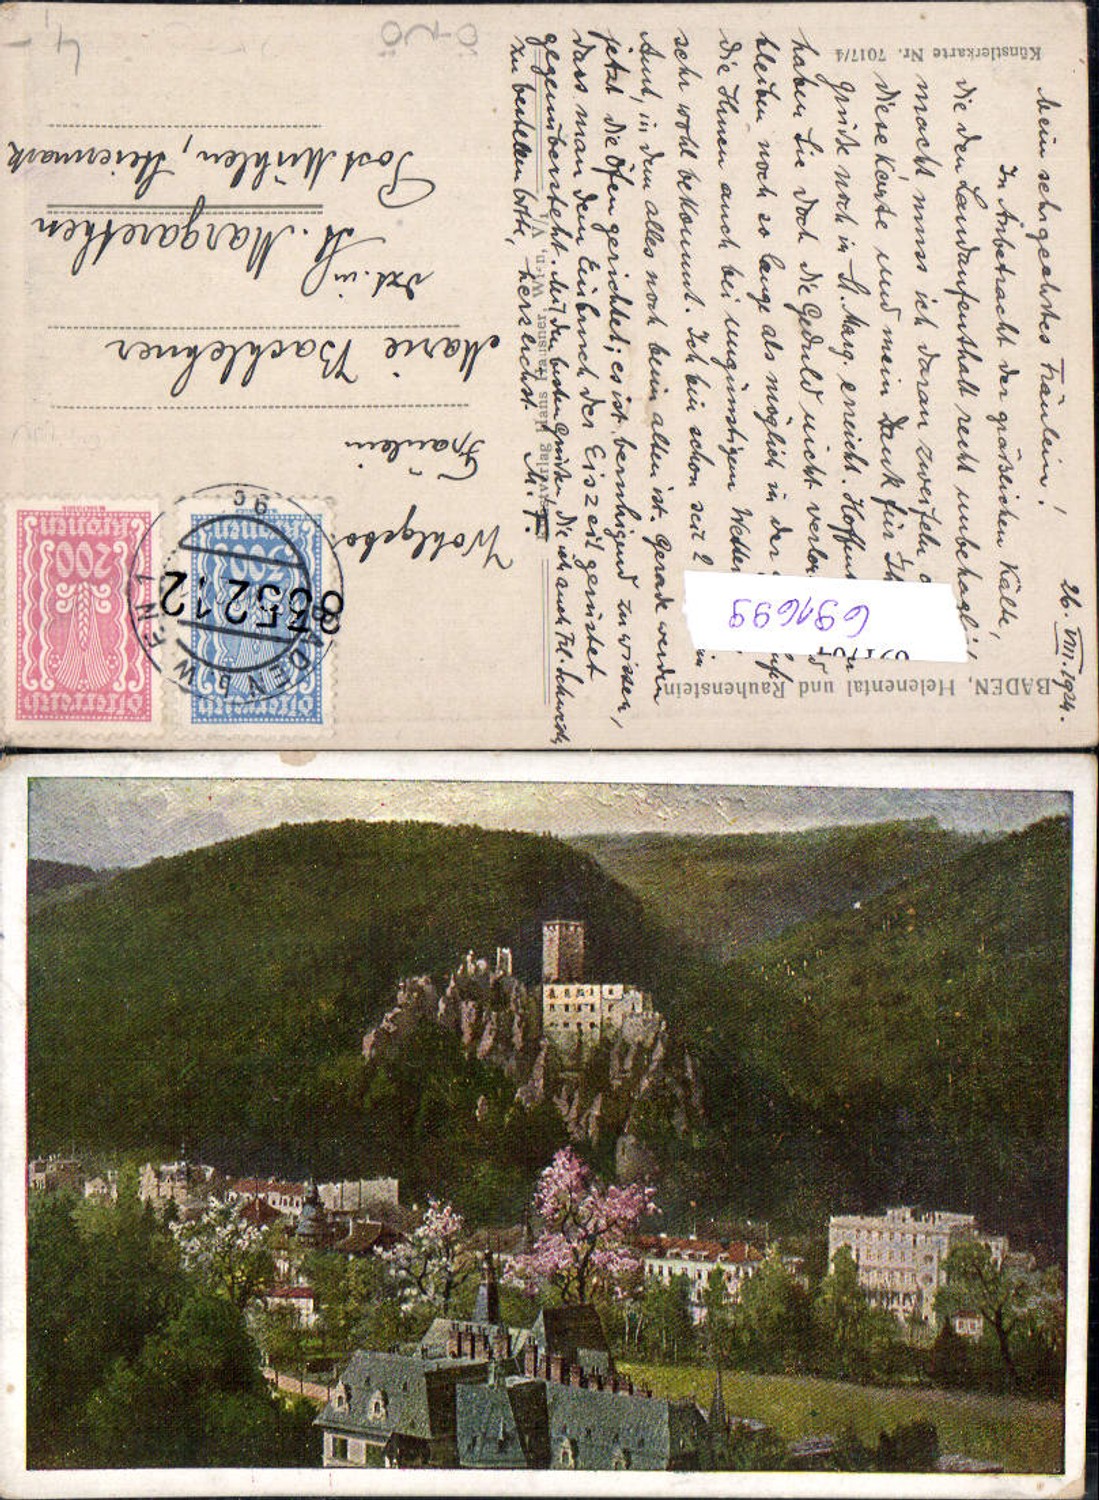 BADEN, Helenental und Rauhenstein
Künstlerkarte Nr. 7017/4
26. VIII. 1924.
Mein sehr geehrtes Fräulein!
In Anbetracht der grässlichen Kälte,
die den Landaufenthalt recht unbehagli
macht muss ich daran zweifeln
diese Karte und mein Dank für Ih
Grüße noch in St. Marg. erreicht. Hoffen
haben Sie doch die Geduld nicht verlo
bleiben noch so lange als möglich in der
die Ihnen auch bei ungünstigem Wetter
sehr wohl bekommt. Ich bin schon seit 2
Amt, in dem alles noch beim alten ist. Gerade werden
jetzt die Öfen gerichtet; es ist beruhigend zu wissen,
dass man dem Einbruch der Eiszeit gerüstet
gegenübersteht. Mit den besten Grüßen, die ich auch Frl. Schwester
zu bestellen bitte, herzlichst
Wohlgeb.
Fräulein
Marie Bachlehner
dzt. in St. Margarethen
Post Mühlen, Steiermark
200
Kronen
Österreich
Kronen
Österreich
BADEN b. WIEN 1
9c
835212
691699
4,-
NÖ